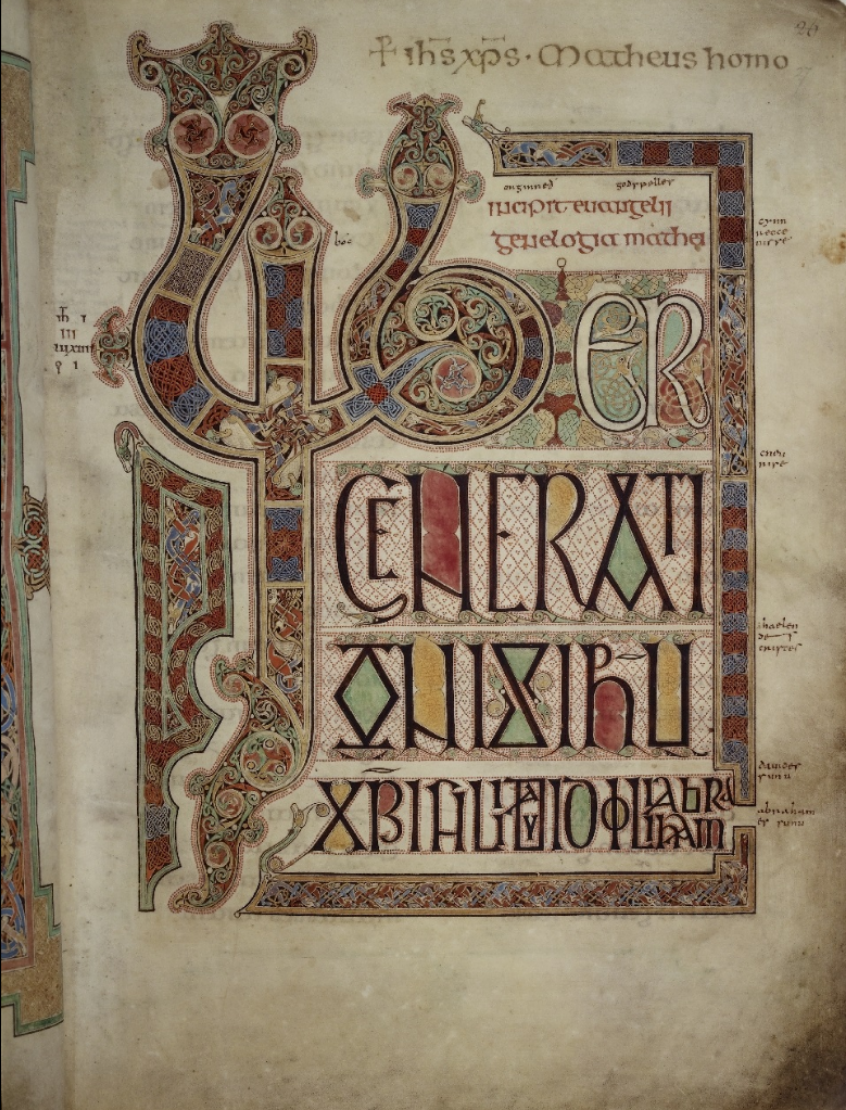 + ihs xps · Matheus homo
onginneð godspelles
incipit euangelii
genelogia mathei
bóc
LIBER
GENERATI
ONIS IHU
XPI FILII DAVID FILII ABRAHAM
hælen
des
cristes
dauides
sunu
abraham
es sunu